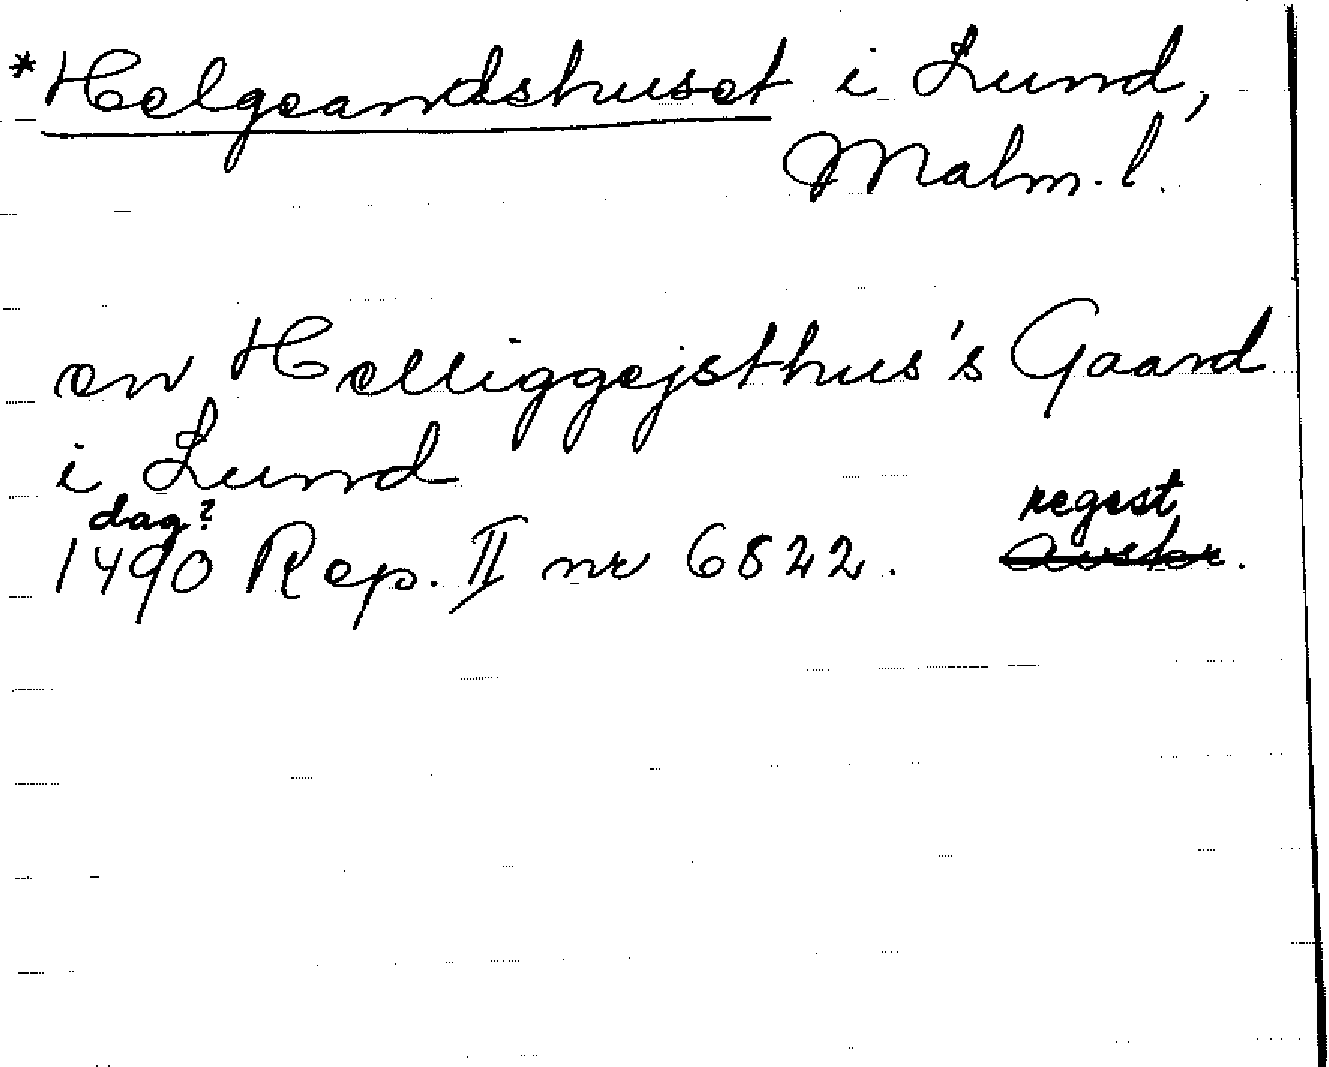 *Helgeandshuset i Lund,
Malm. l.
en Helliggejsthus's Gaard
i Lund
dag? regest
1490 Rep. II nr 6822. Avskr.